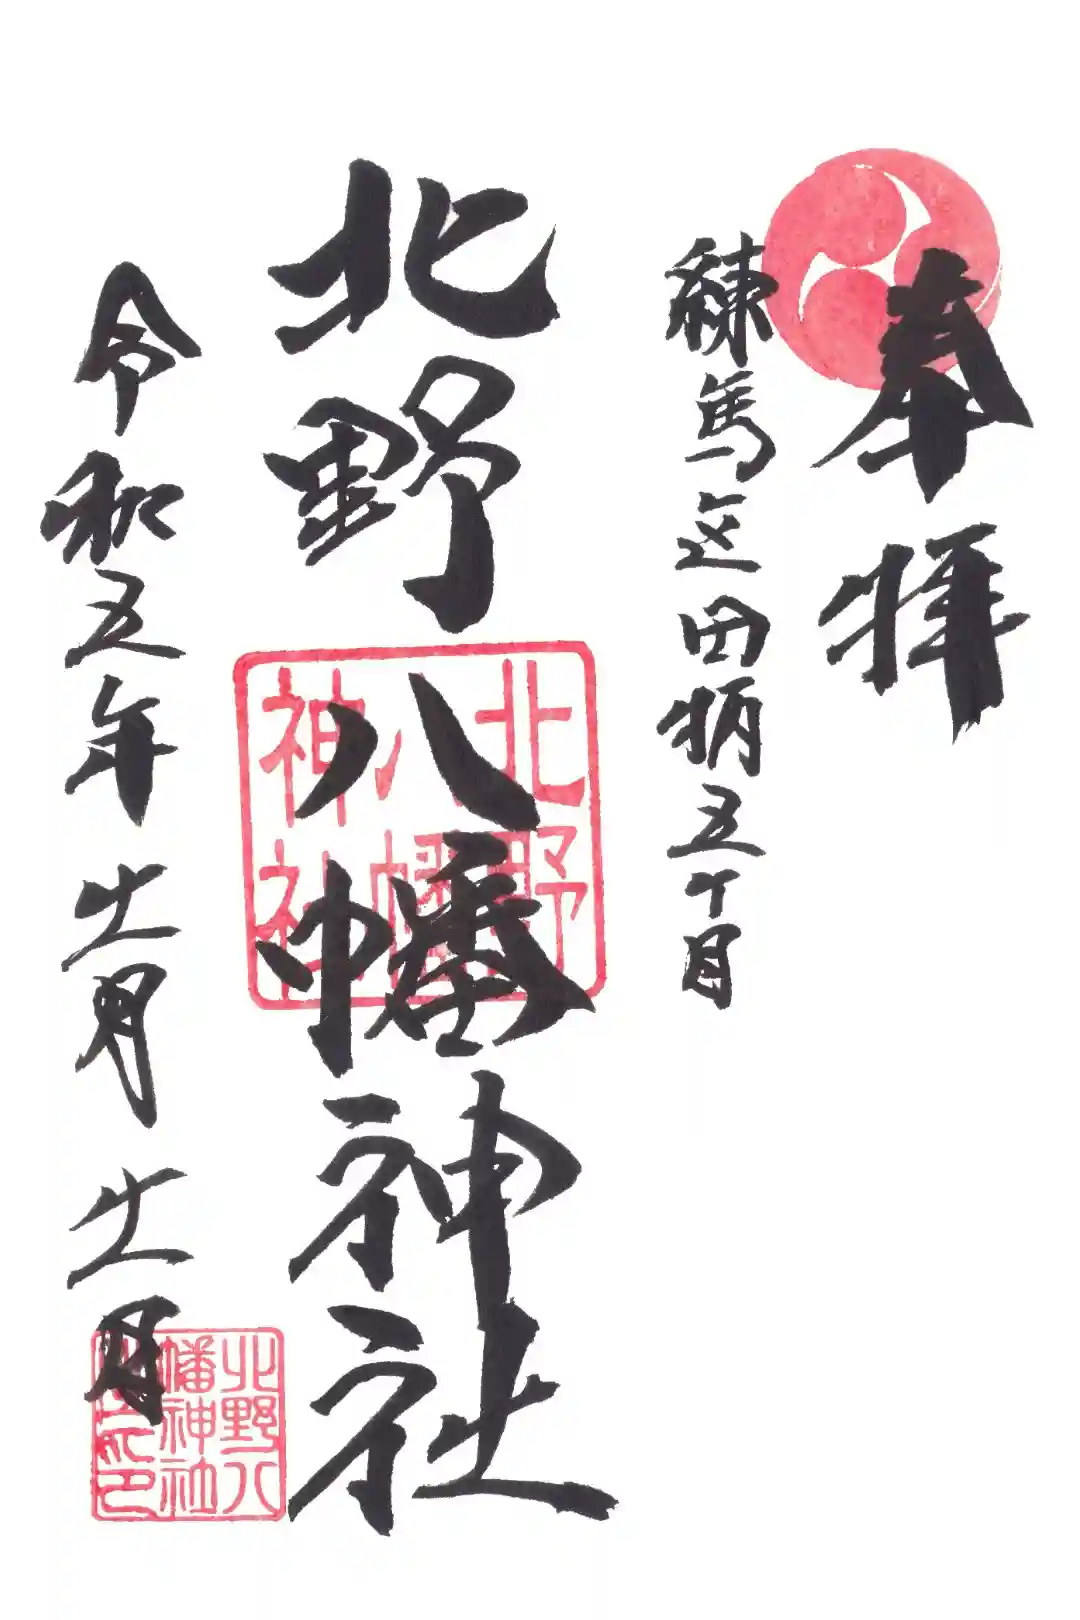 奉拝
練馬区田柄五丁目
北野八幡神社
北野
八幡
神社
令和五年十一月十一日
北野八
幡神社
之印